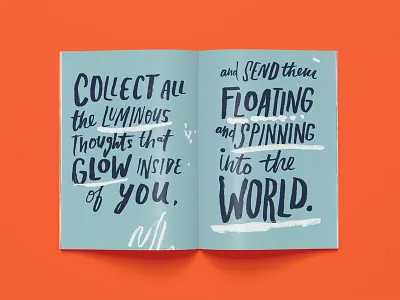 COLLECT ALL
the LUMINOUS
Thoughts that
GLOW INSIDE
of YOU,
and SEND them
FLOATING
and SPINNING
into the
WORLD.